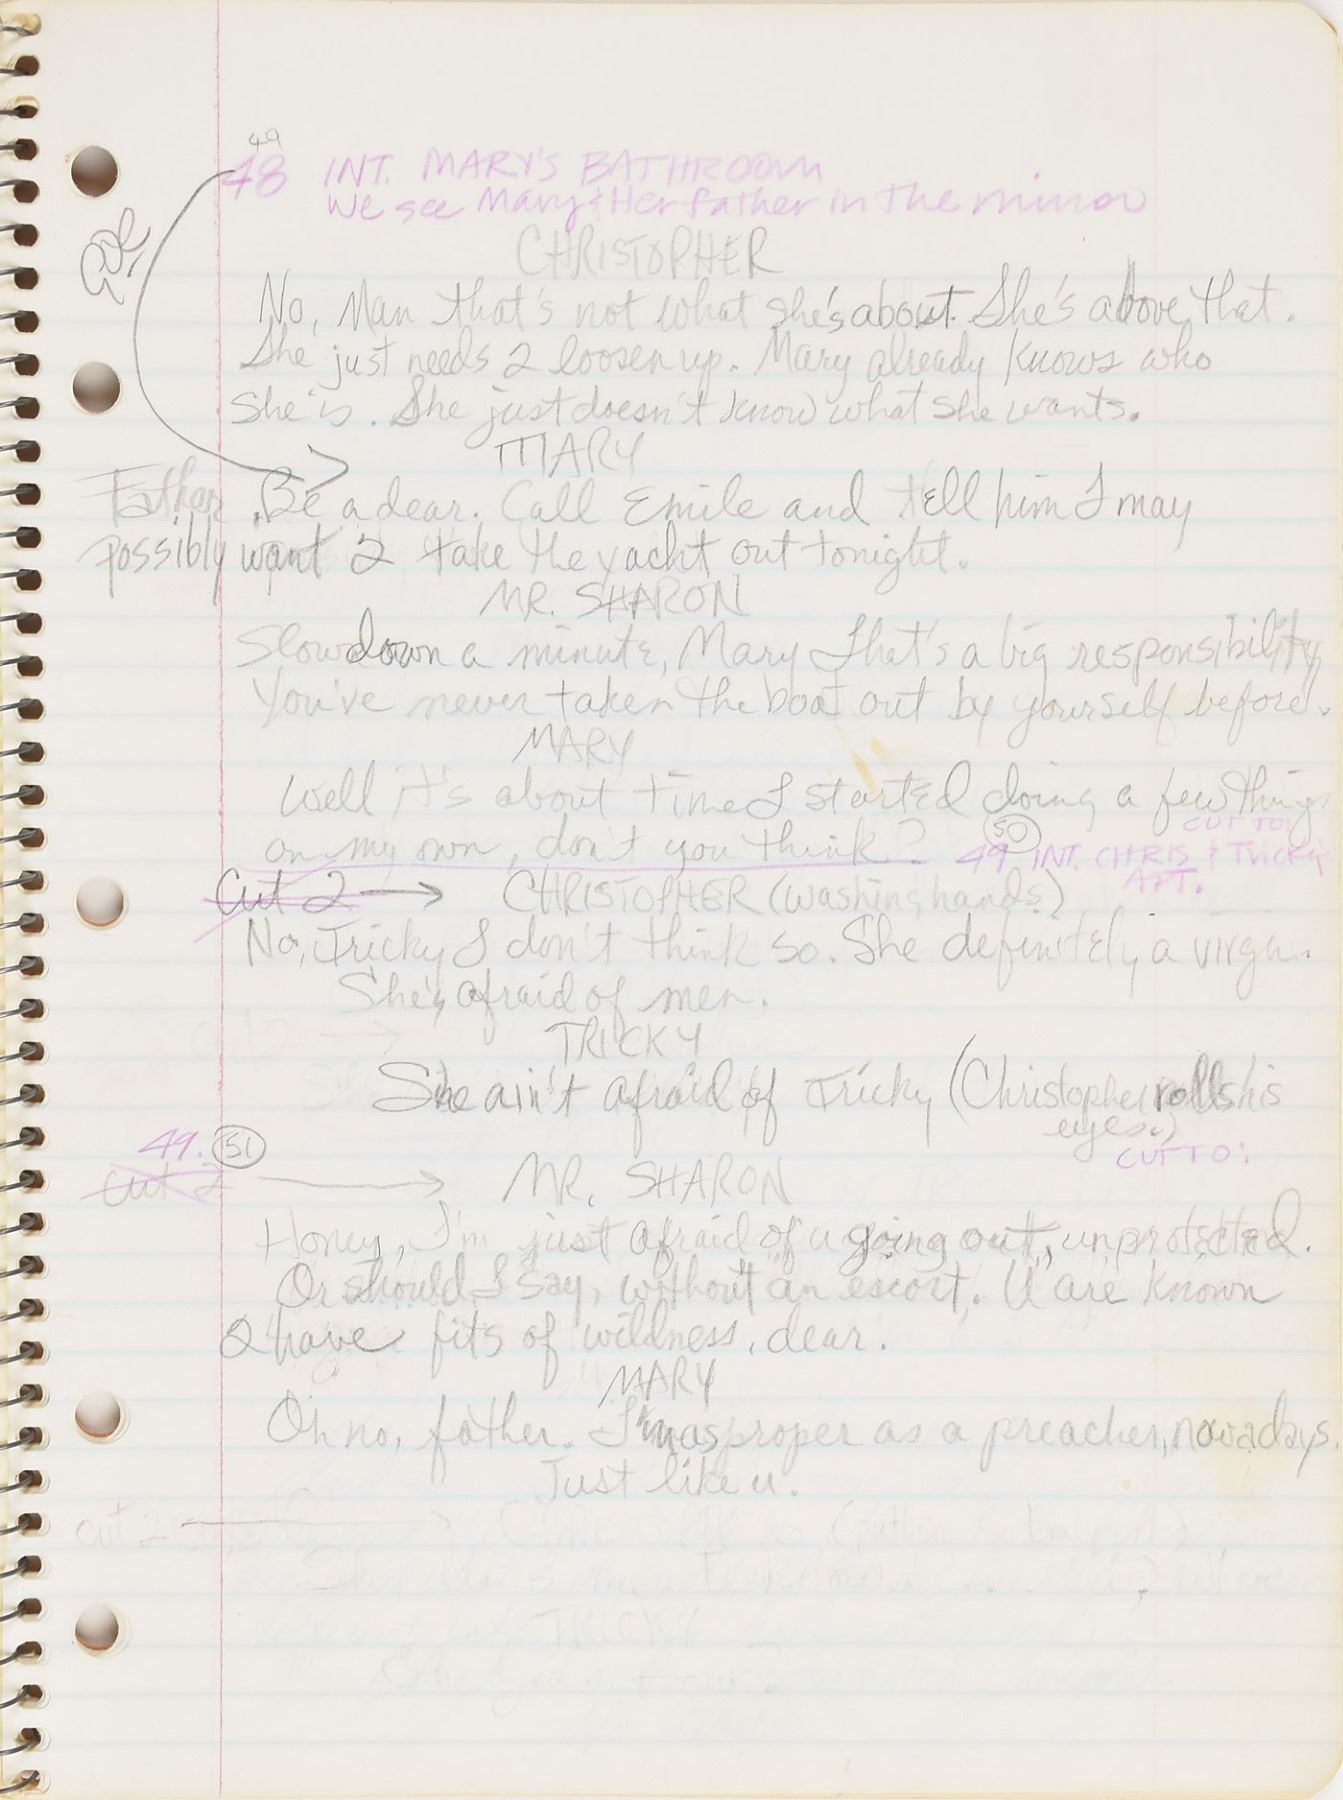 49
48 INT. MARY'S BATHROOM
We see Mary & Her father in the mirror
CHRISTOPHER
No, Man that's not what she's about. She's above that.
She just needs 2 loosen up. Mary already knows who
she is. She just doesn't know what she wants.
MARY
Father, Be a dear. Call Emile and tell him I may
possibly want 2 take the yacht out tonight.
MR. SHARON
Slow down a minute, Mary That's a big responsibility
You've never taken the boat out by yourself before.
MARY
Well it's about time I started doing a few things
on my own, don't you think?
50 CUT TO:
49 INT. CHRIS & Tricky
APT.
Cut 2 → CHRISTOPHER (washing hands)
No, Tricky I don't think so. She definitely a virgin.
She's afraid of men.
TRICKY
She ain't afraid of Tricky (Christopher rolls his
eyes.)
CUT TO:
49. 51
cut 2 → MR. SHARON
Honey, I'm just afraid of u going out, unprotected.
Or should I say, without an escort. U are known
2 have fits of wildness, dear.
MARY
Oh no, father. I'm as proper as a preacher, nowadays.
Just like u.
cut 2
TRICKY